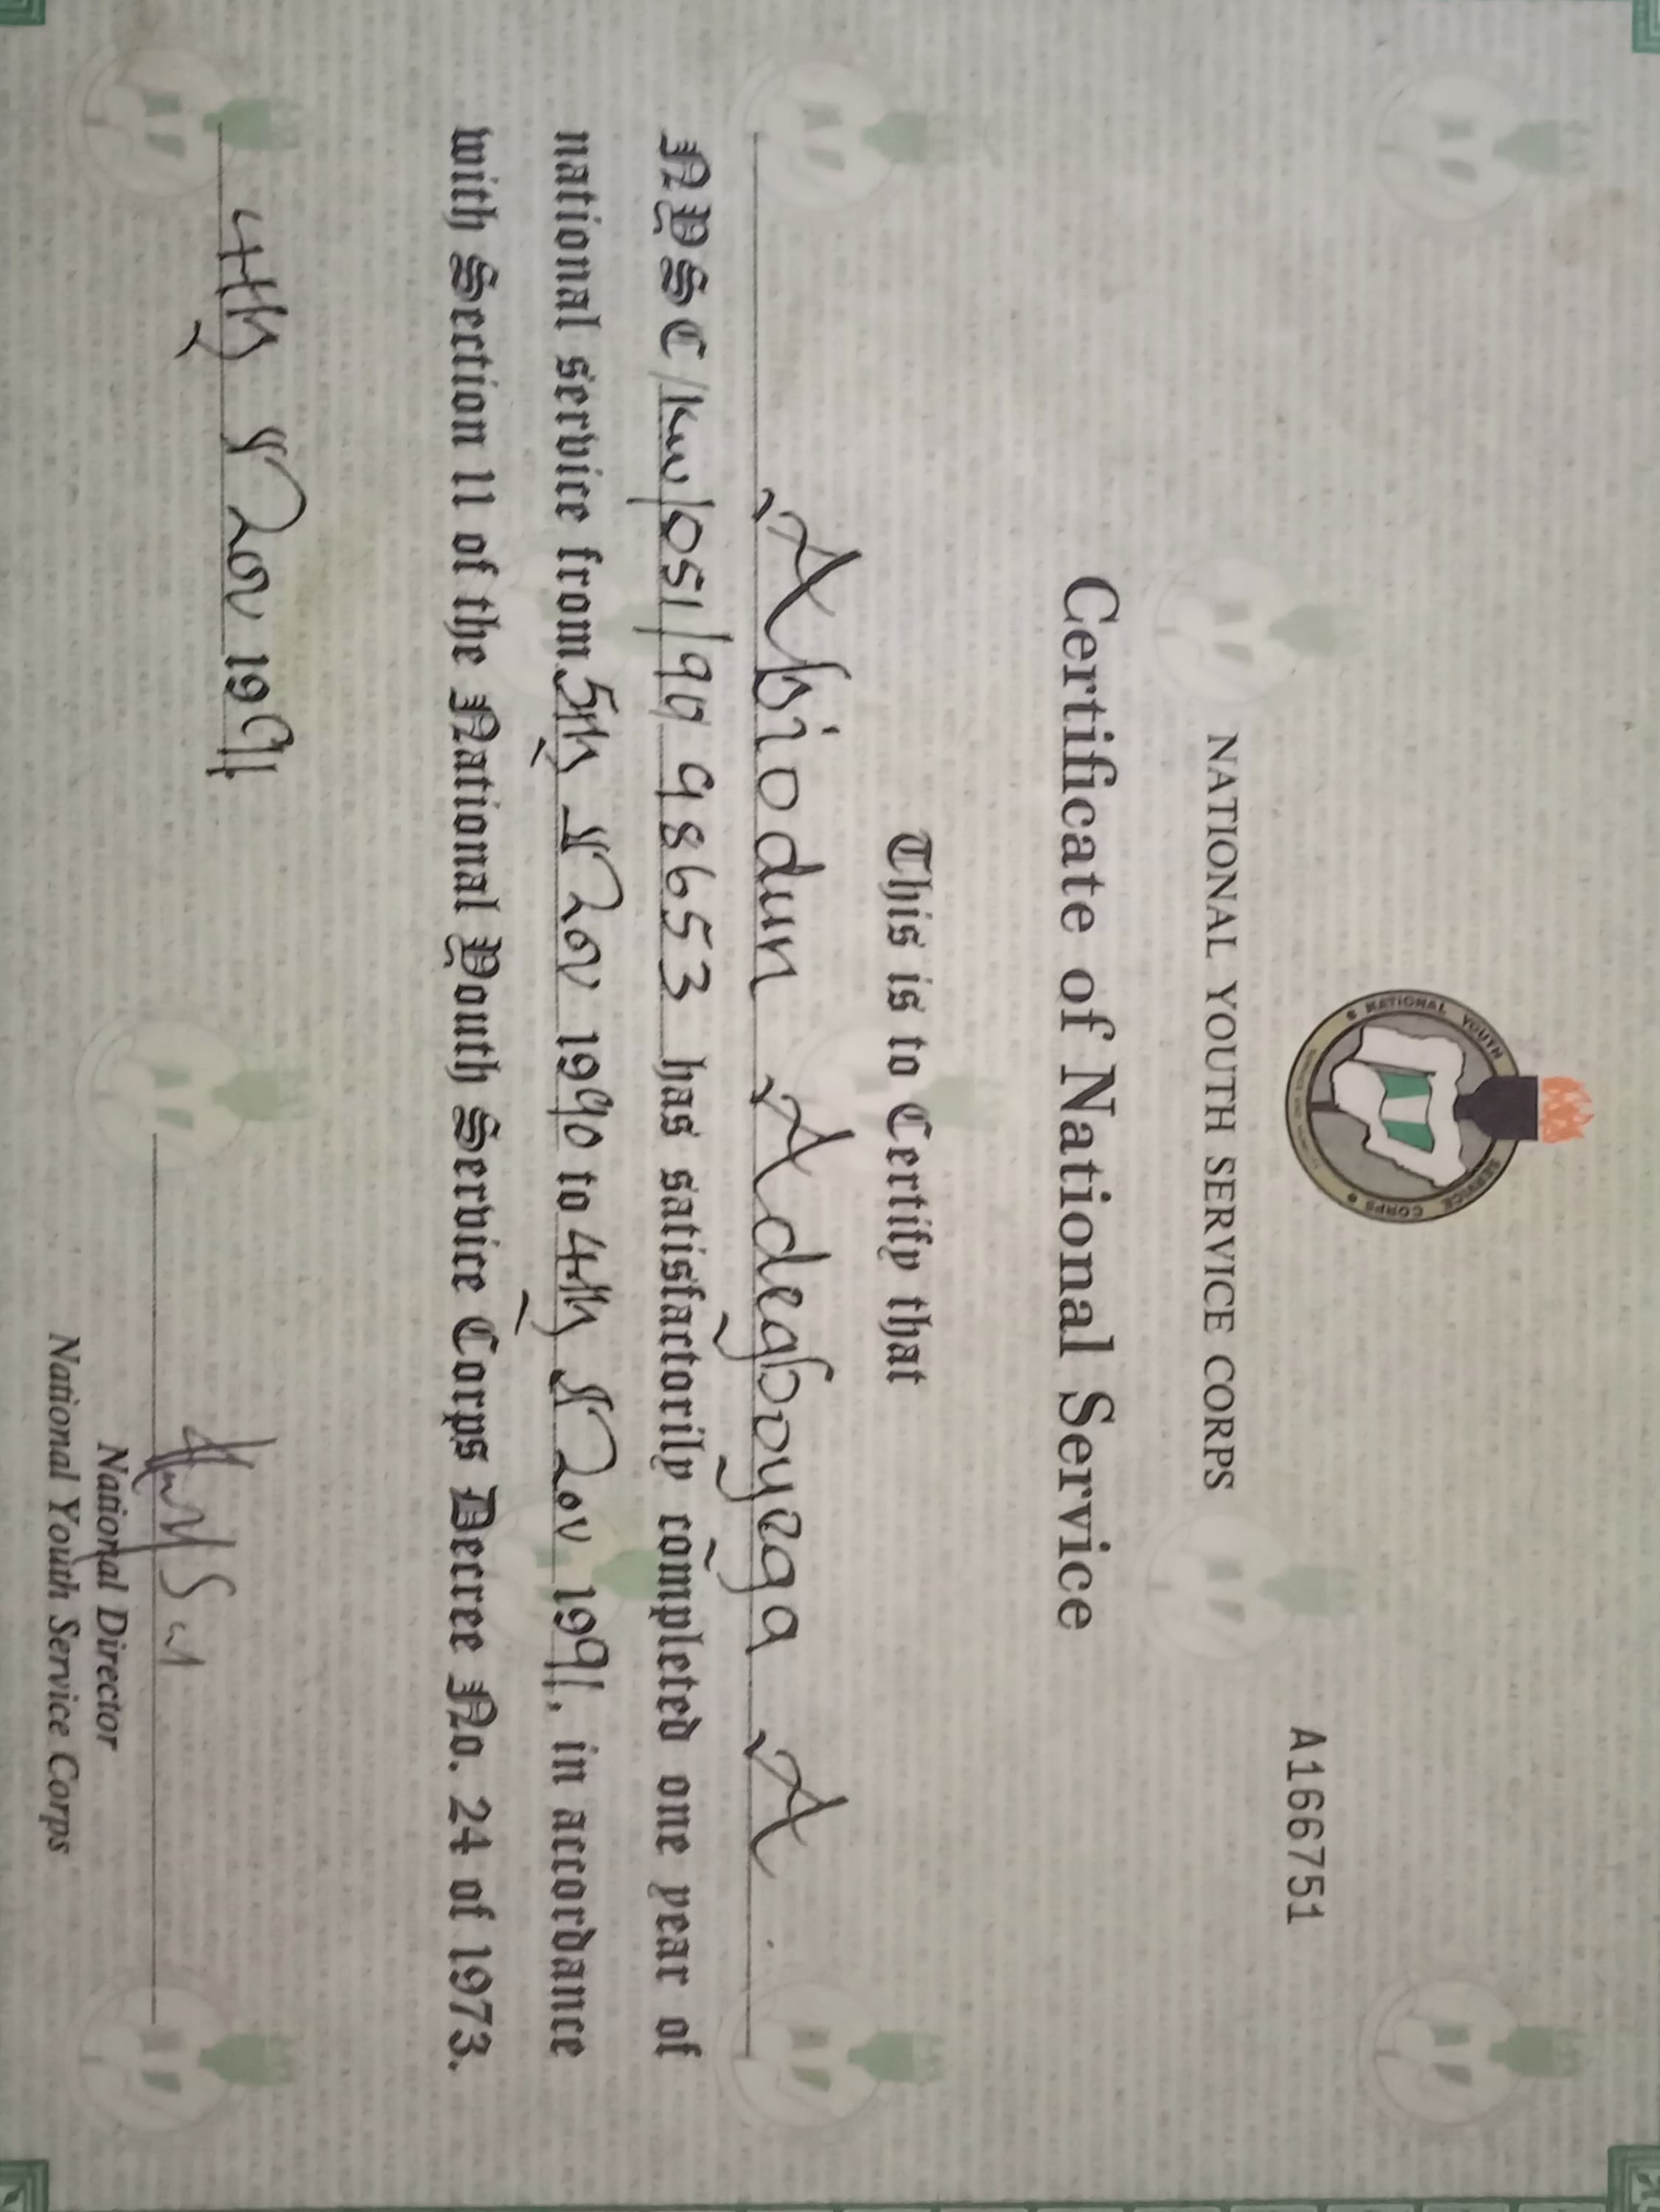 NATIONAL YOUTH SERVICE CORPS
A166751
NATIONAL YOUTH SERVICE CORPS
Certificate of National Service
This is to Certify that
Abiodun Adegboyega A.
NYSC/KW/OSI/90 98653 has satisfactorily completed one year of
national service from 5th Nov 1990 to 4th Nov 1991, in accordance
with Section 11 of the National Youth Service Corps Decree No. 24 of 1973.
4th Nov 1991
National Director
National Youth Service Corps